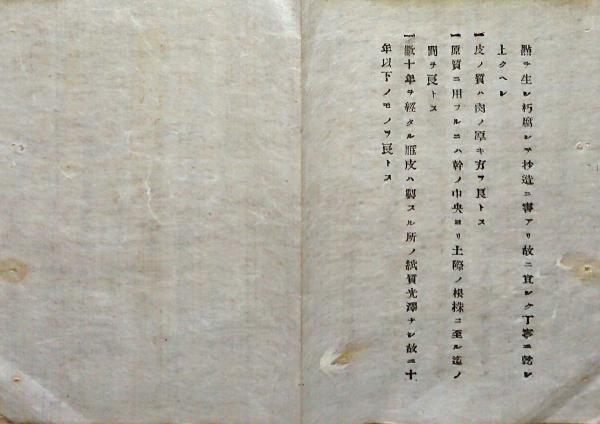 熱ヲ生シ朽腐シテ抄造ニ害アリ故ニ宜シク丁寧ニ乾シ
上クヘシ
一皮ノ質ハ肉ノ厚キ方ヲ良トス
一原質ニ用フルニハ幹ノ中央ヨリ土際ノ根株ニ至ル迄ノ
間ヲ良トス
一數十年ヲ經タル雁皮ハ製スル所ノ紙質光澤ナシ故ニ十
年以下ノモノヲ良トス